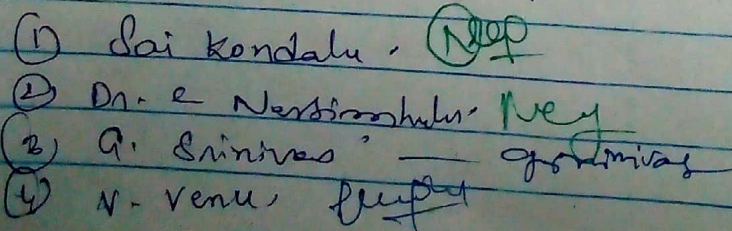 (1) Sai Kondalu.
(2) Dr. e Narsimhulu.
(3) G. Srinivas — gsrinivas
(4) N. Venu,